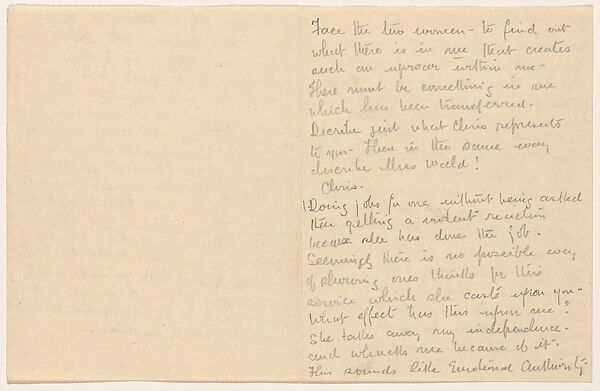 Face the two women - to find out
what there is in me that creates
such an uproar within me -
There must be something in me
which has been transferred -
Decribe just what Chris represents
to you - Then in the same way
describe Miss Weald!
Chris -
1. Doing jobs for one without being asked
then getting a violent reaction
because she has done the job -
Seemingly there is no possible way
of showing ones thanks for this
service which she casts upon you -
What effect has this upon me?
She takes away my independence -
and whacks me because of it -
This sounds like Emotional Authority -